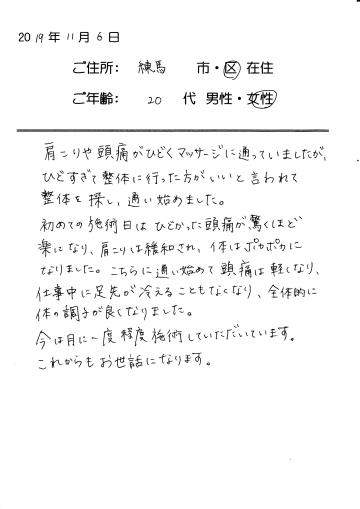 2019年11月6日
ご住所: 練馬 市・区 在住
ご年齢: 20 代 男性・女性
肩こりや頭痛がひどくマッサージに通っていましたが、
ひどすぎて整体に行った方がいいと言われて
整体を探し、通い始めました。
初めての施術日はひどかった頭痛が驚くほど
楽になり、肩こりは緩和され、体はポカポカに
なりました。こちらに通い始めて頭痛は軽くなり、
仕事中に足先が冷えることもなくなり、全体的に
体の調子が良くなりました。
今は月に一度程度施術していただいています。
これからもお世話になります。